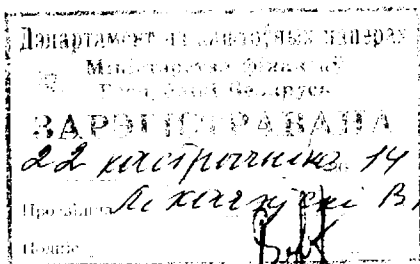 Дэпартамент па каштоўных паперах
Міністэрства фінансаў
Рэспублікі Беларусь
ЗАРЭГІСТРАВАНА
22 кастрычніка 14
Прозвішча
Подпіс